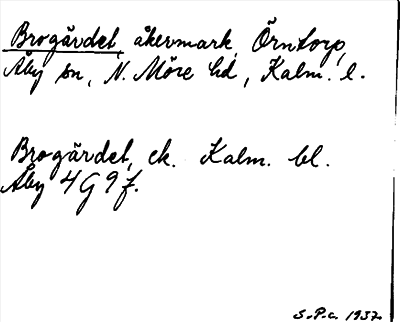 Brogärdet, åkermark, Örntorp,
Åby sn, N. Möre hd, Kalm. l.
Brogärdet, ek. Kalm. bl.
Åby 4 G 9 f.
S.P.c. 1937.